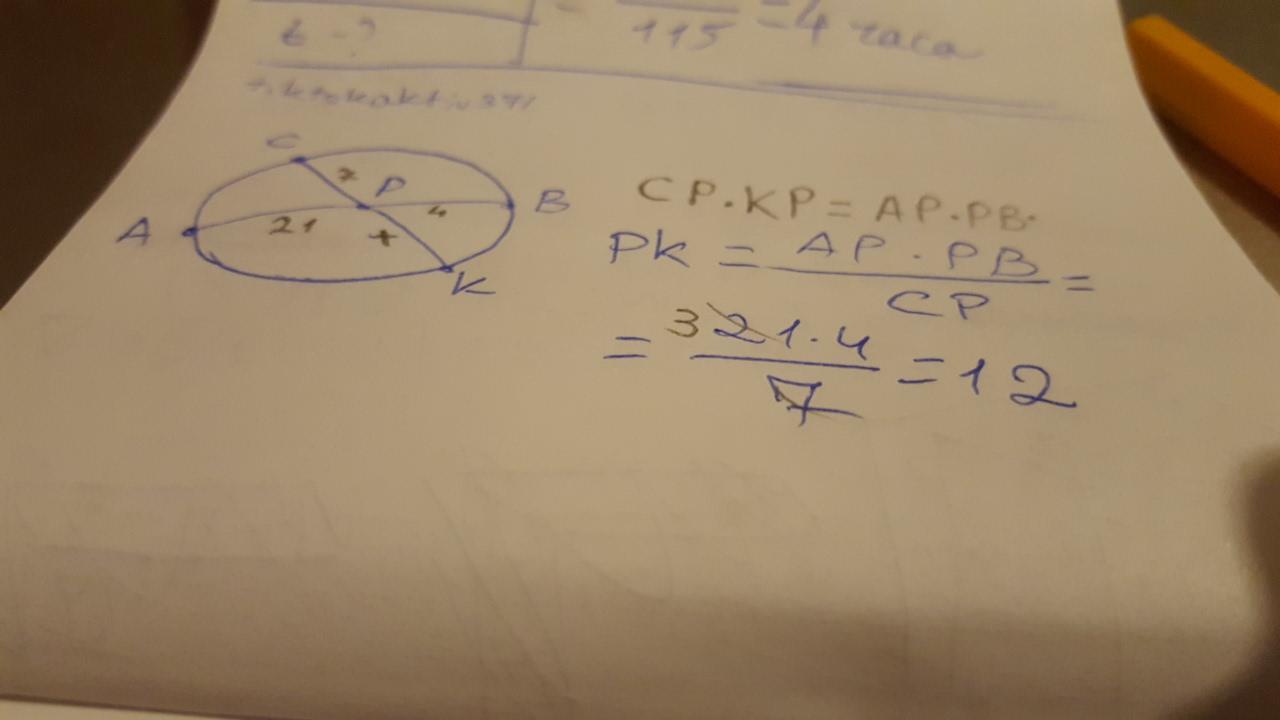 t - ?
115 = 4 часа
C
7 P
A 21 4 B
x
K
CP·KP = AP·PB·
PK = AP·PB / CP =
= 3 21·4 / 7 = 12